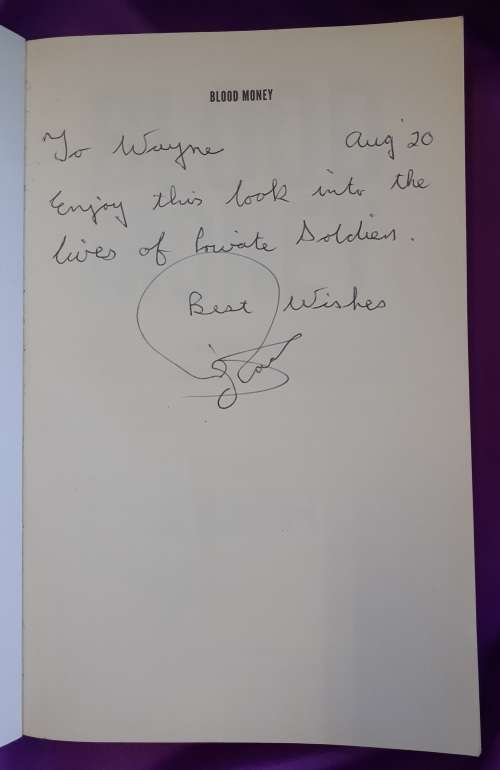 BLOOD MONEY
To Wayne Aug '20
Enjoy this look into the
lives of Private Soldiers.
Best Wishes